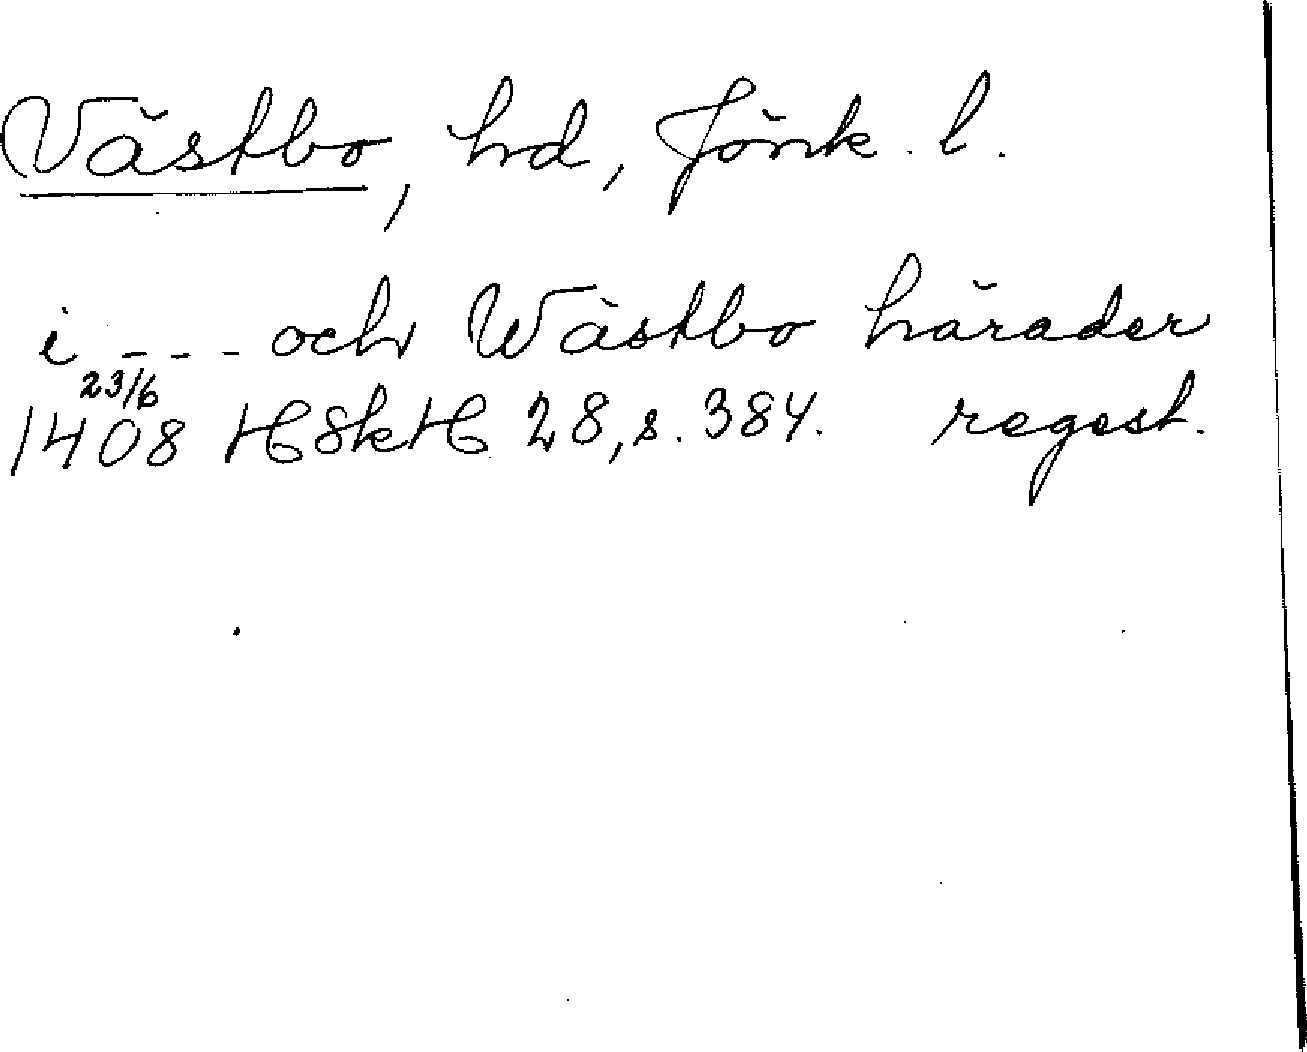 Västbo, hd, Jönk. l.
i --- och Wästbo härader
23/6
1408 HSkH 28, s. 384. regest.